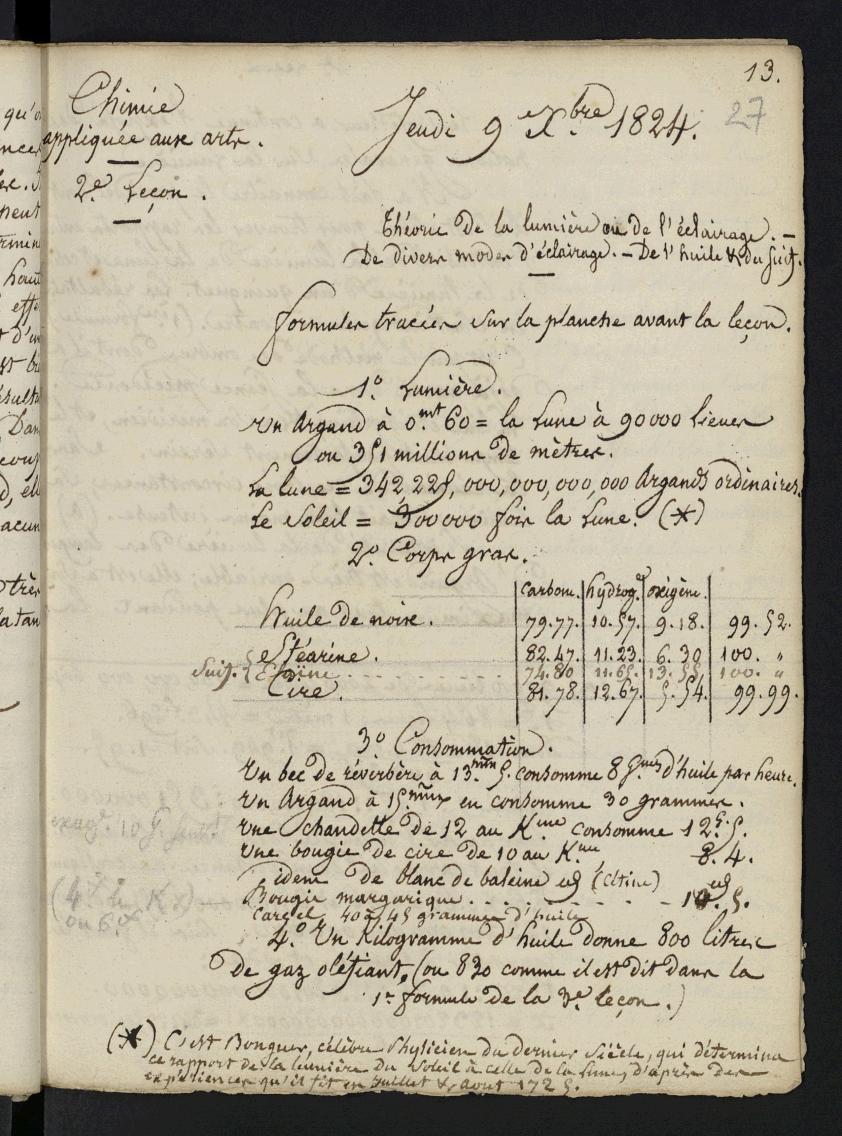 13.
27
Chimie
appliquée aux arts.
2.e Leçon.
Jeudi 9 Xbre 1824.
Théorie de la lumière ou de l'éclairage. —
De divers modes d'éclairage. — De l'huile & du suif.
formules tracées sur la planche avant la leçon.
1.o Lumière.
Un Argand à 0.mt 60 = la Lune à 90000 lieues
ou 351 millions de mètres.
La lune = 342,225,000,000,000,000 Argands ordinaires.
Le Soleil = 300000 fois la Lune. (*)
2.o Corps gras.
carbone. hydrog. oxigène.
Huile de noix. 79.77. 10.57. 9.18. 99.52.
Suif. { Stéarine. 82.47. 11.23. 6.30 100. "
74.80 11.65. 13.55 100. "
Cire. 81.78. 12.67. 5.54. 99.99.
3.o Consommation.
Un bec de réverbère à 13. 5. consomme d'huile par heure.
Un Argand à 15 en consomme 30 grammes.
Une chandelle de 12 au K.me consomme 12.g. 5.
Une bougie de cire de 10 au K.me 8. 4.
idem de blanc de baleine
Bougie margarique 5.
Carcel 40 à 45 grammes d'huile
4.o Un Kilogramme d'huile donne 800 litres
de gaz oléfiant, (ou 830 comme il est dit dans la
1.re formule de la 3.e leçon.)
(*) C'est Bouguer, célèbre Physicien du dernier siècle, qui détermina
ce rapport de la lumière du Soleil à celle de la Lune, d'après des
expériences qu'il fit en Juillet & Aout 1725.